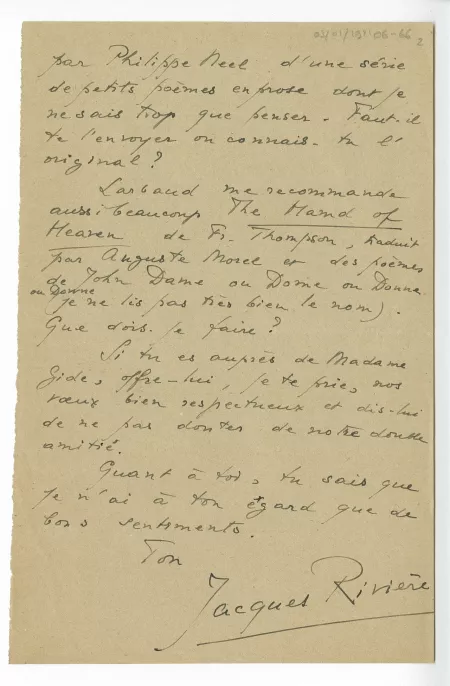 2
par Philippe Neel d'une série
de petits poèmes en prose dont je
ne sais trop que penser. Faut-il
te l'envoyer ou connais-tu l'
original?
Larbaud me recommande
aussi beaucoup The Hamd of
Heaven de Fr. Thompson, traduit
par Auguste Morel et des poèmes
de John Dame ou Dome ou Donne
ou Denne
je ne lis pas très bien le nom).
Que dois-je faire?
Si tu es auprès de Madame
Gide, offre-lui, je te prie, nos
vœux bien respectueux et dis-lui
de ne pas douter de notre double
amitié.
Quant à toi, tu sais que
je n'ai à ton égard que de
bons sentiments.
Ton
Jacques Rivière